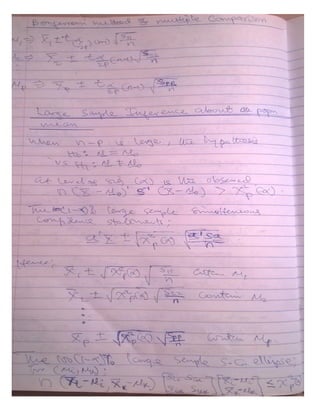 Bonferroni method of multiple Comparison
μ₁ ⇒ x̄₁ ± t_{α/2p}(n-1) √(S₁₁/n)
x̄₂ ± t_{α/2p}(n-1)
μp ⇒ x̄p ± t_{α/2p}(n-1) √(Spp/n)
Large Sample Inference about a popn
mean
When n-p is large, the hypothesis
H₀: μ = μ₀
vs H₁: μ ≠ μ₀
at level (α) is the observed
n(x̄ - μ₀)' S⁻¹ (x̄ - μ₀) > χ²p(α).
The large sample simultaneous
confidence statements:
a'x̄ ± √χ²p(α) √(a'Sa/n)
Hence;
x̄₁ ± √χ²p(α) √(S₁₁/n) contain μ₁
± √χ²p(α) contain μ₂
x̄p ± √χ²p(α) √(Spp/n) contain μp
The 100(1-α)% large sample S.C. ellipse
for (μi, μk):
n (x̄i - μi, x̄k - μk) ≤ χ²p(α)